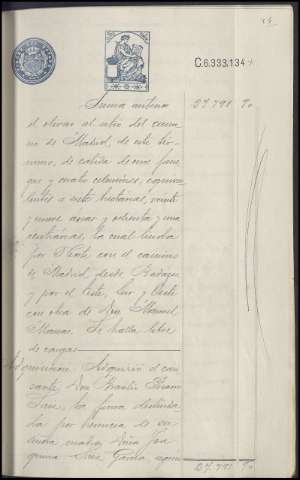 C.6.333.134
Suma anterior 27.791 70
el olivar al sitio del cami
no de Madrid, de este tér
mino, de cabida de once fane
gas y cuatro celemines, equiva
lentes a siete hectáreas, veinti
y nueve areas y ochenta y una
centiáreas, la cual linda
por Norte con el camino
de Madrid, desde Badajoz
y por el Este, Sur y Oeste
con otra de Don Manuel
Se halla libre
de cargas
Adquirió el cau
sante, Don
la finca deslinda
da por herencia de su
madre, Doña Joa
quina García, según
27.791 70